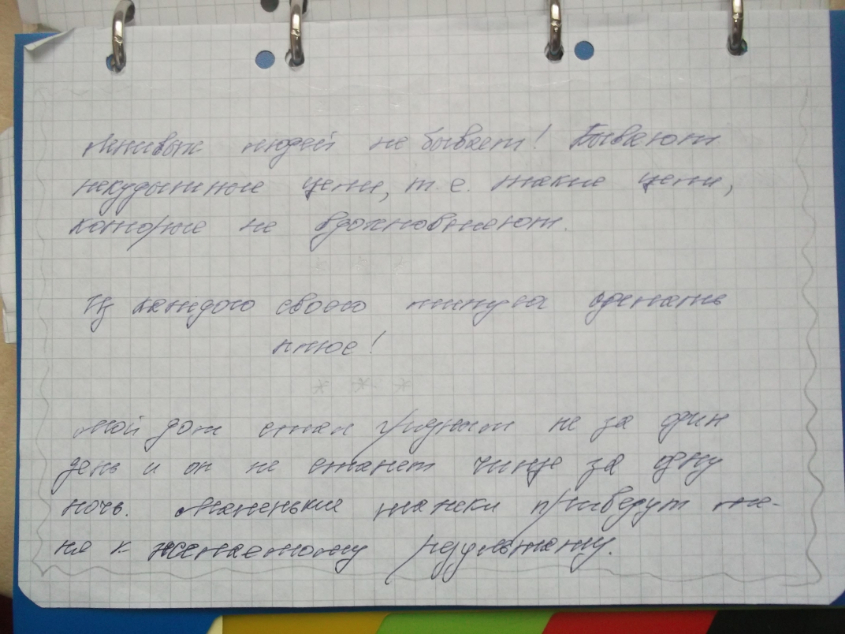 Ленивых людей не бывает! Бывают
никудышные цели, т.е. такие цели,
которые не вдохновляют.
Из каждого своего минуса сделать
плюс!
* * *
Мой дом стал грязным не за один
день и он не станет чище за одну
ночь. Маленькие шажки приведут ме-
ня к желаемому результату.